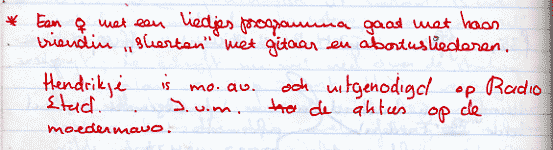 * Een ♀ met een liedjesprogramma gaat met haar
vriendin „sherten" met gitaar en abortusliederen.
Hendrikje is mo. av. ook uitgenodigd op Radio
Stad. I.v.m. de akties op de
moedermavo.